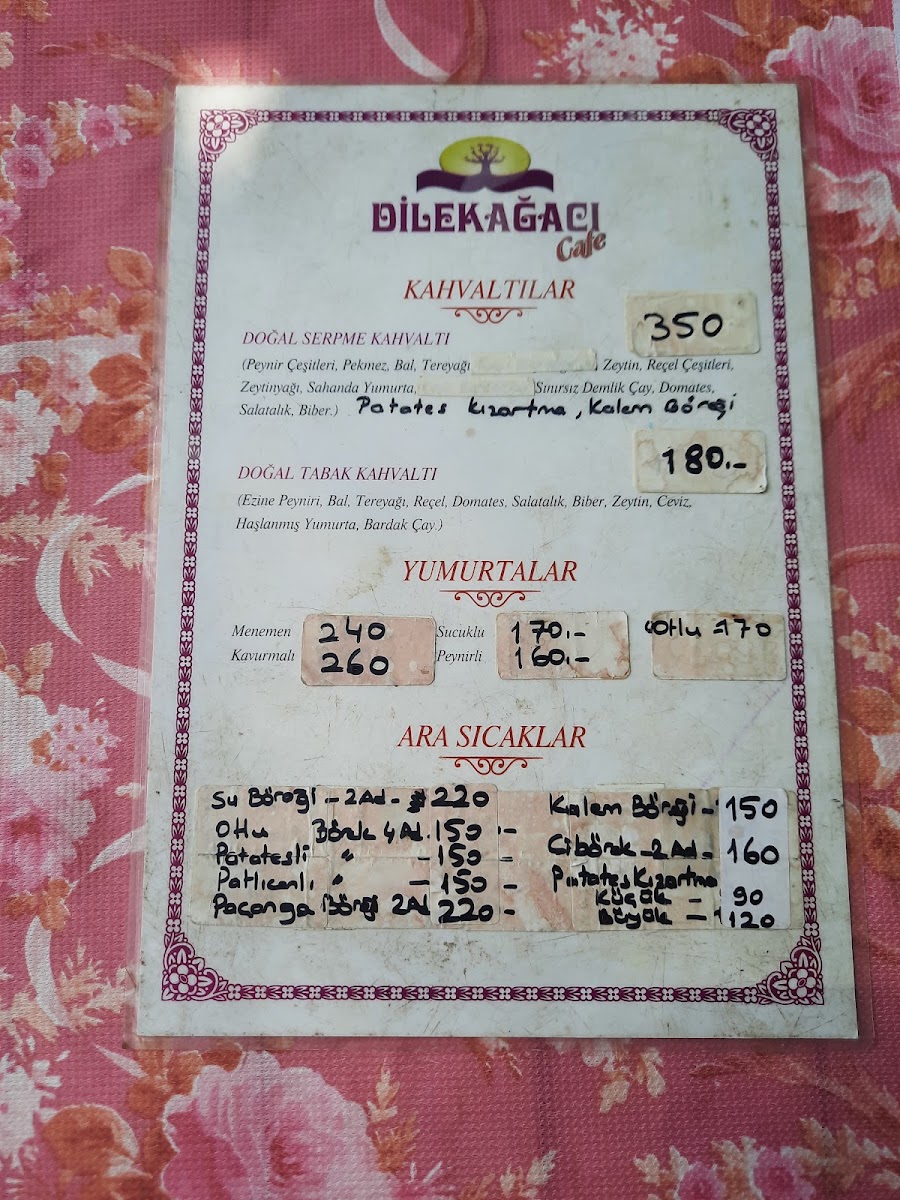 DİLEKAĞACI
Cafe
KAHVALTILAR
350
DOĞAL SERPME KAHVALTI
(Peynir Çeşitleri, Pekmez, Bal, Tereyağı Zeytin, Reçel Çeşitleri,
Zeytinyağı, Sahanda Yumurta, Sınırsız Demlik Çay, Domates,
Salatalık, Biber.) Patates Kızartma, Kalem Böreği
180.-
DOĞAL TABAK KAHVALTI
(Ezine Peyniri, Bal, Tereyağı, Reçel, Domates, Salatalık, Biber, Zeytin, Ceviz,
Haşlanmış Yumurta, Bardak Çay.)
YUMURTALAR
Menemen 240 Sucuklu 170.- Otlu =170
Kavurmalı 260 Peynirli 160.-
ARA SICAKLAR
Su Böreği - 2Ad - 220 Kalem Böreği - 150
Otlu Börek 4 Ad. 150 - Çibörek - 2 Ad - 160
Patatesli " - 150 - Patates Kızartma
Patlıcanlı " - 150 - Küçük - 90
Paçanga Böreği 2Ad 220 - Büyük - 120